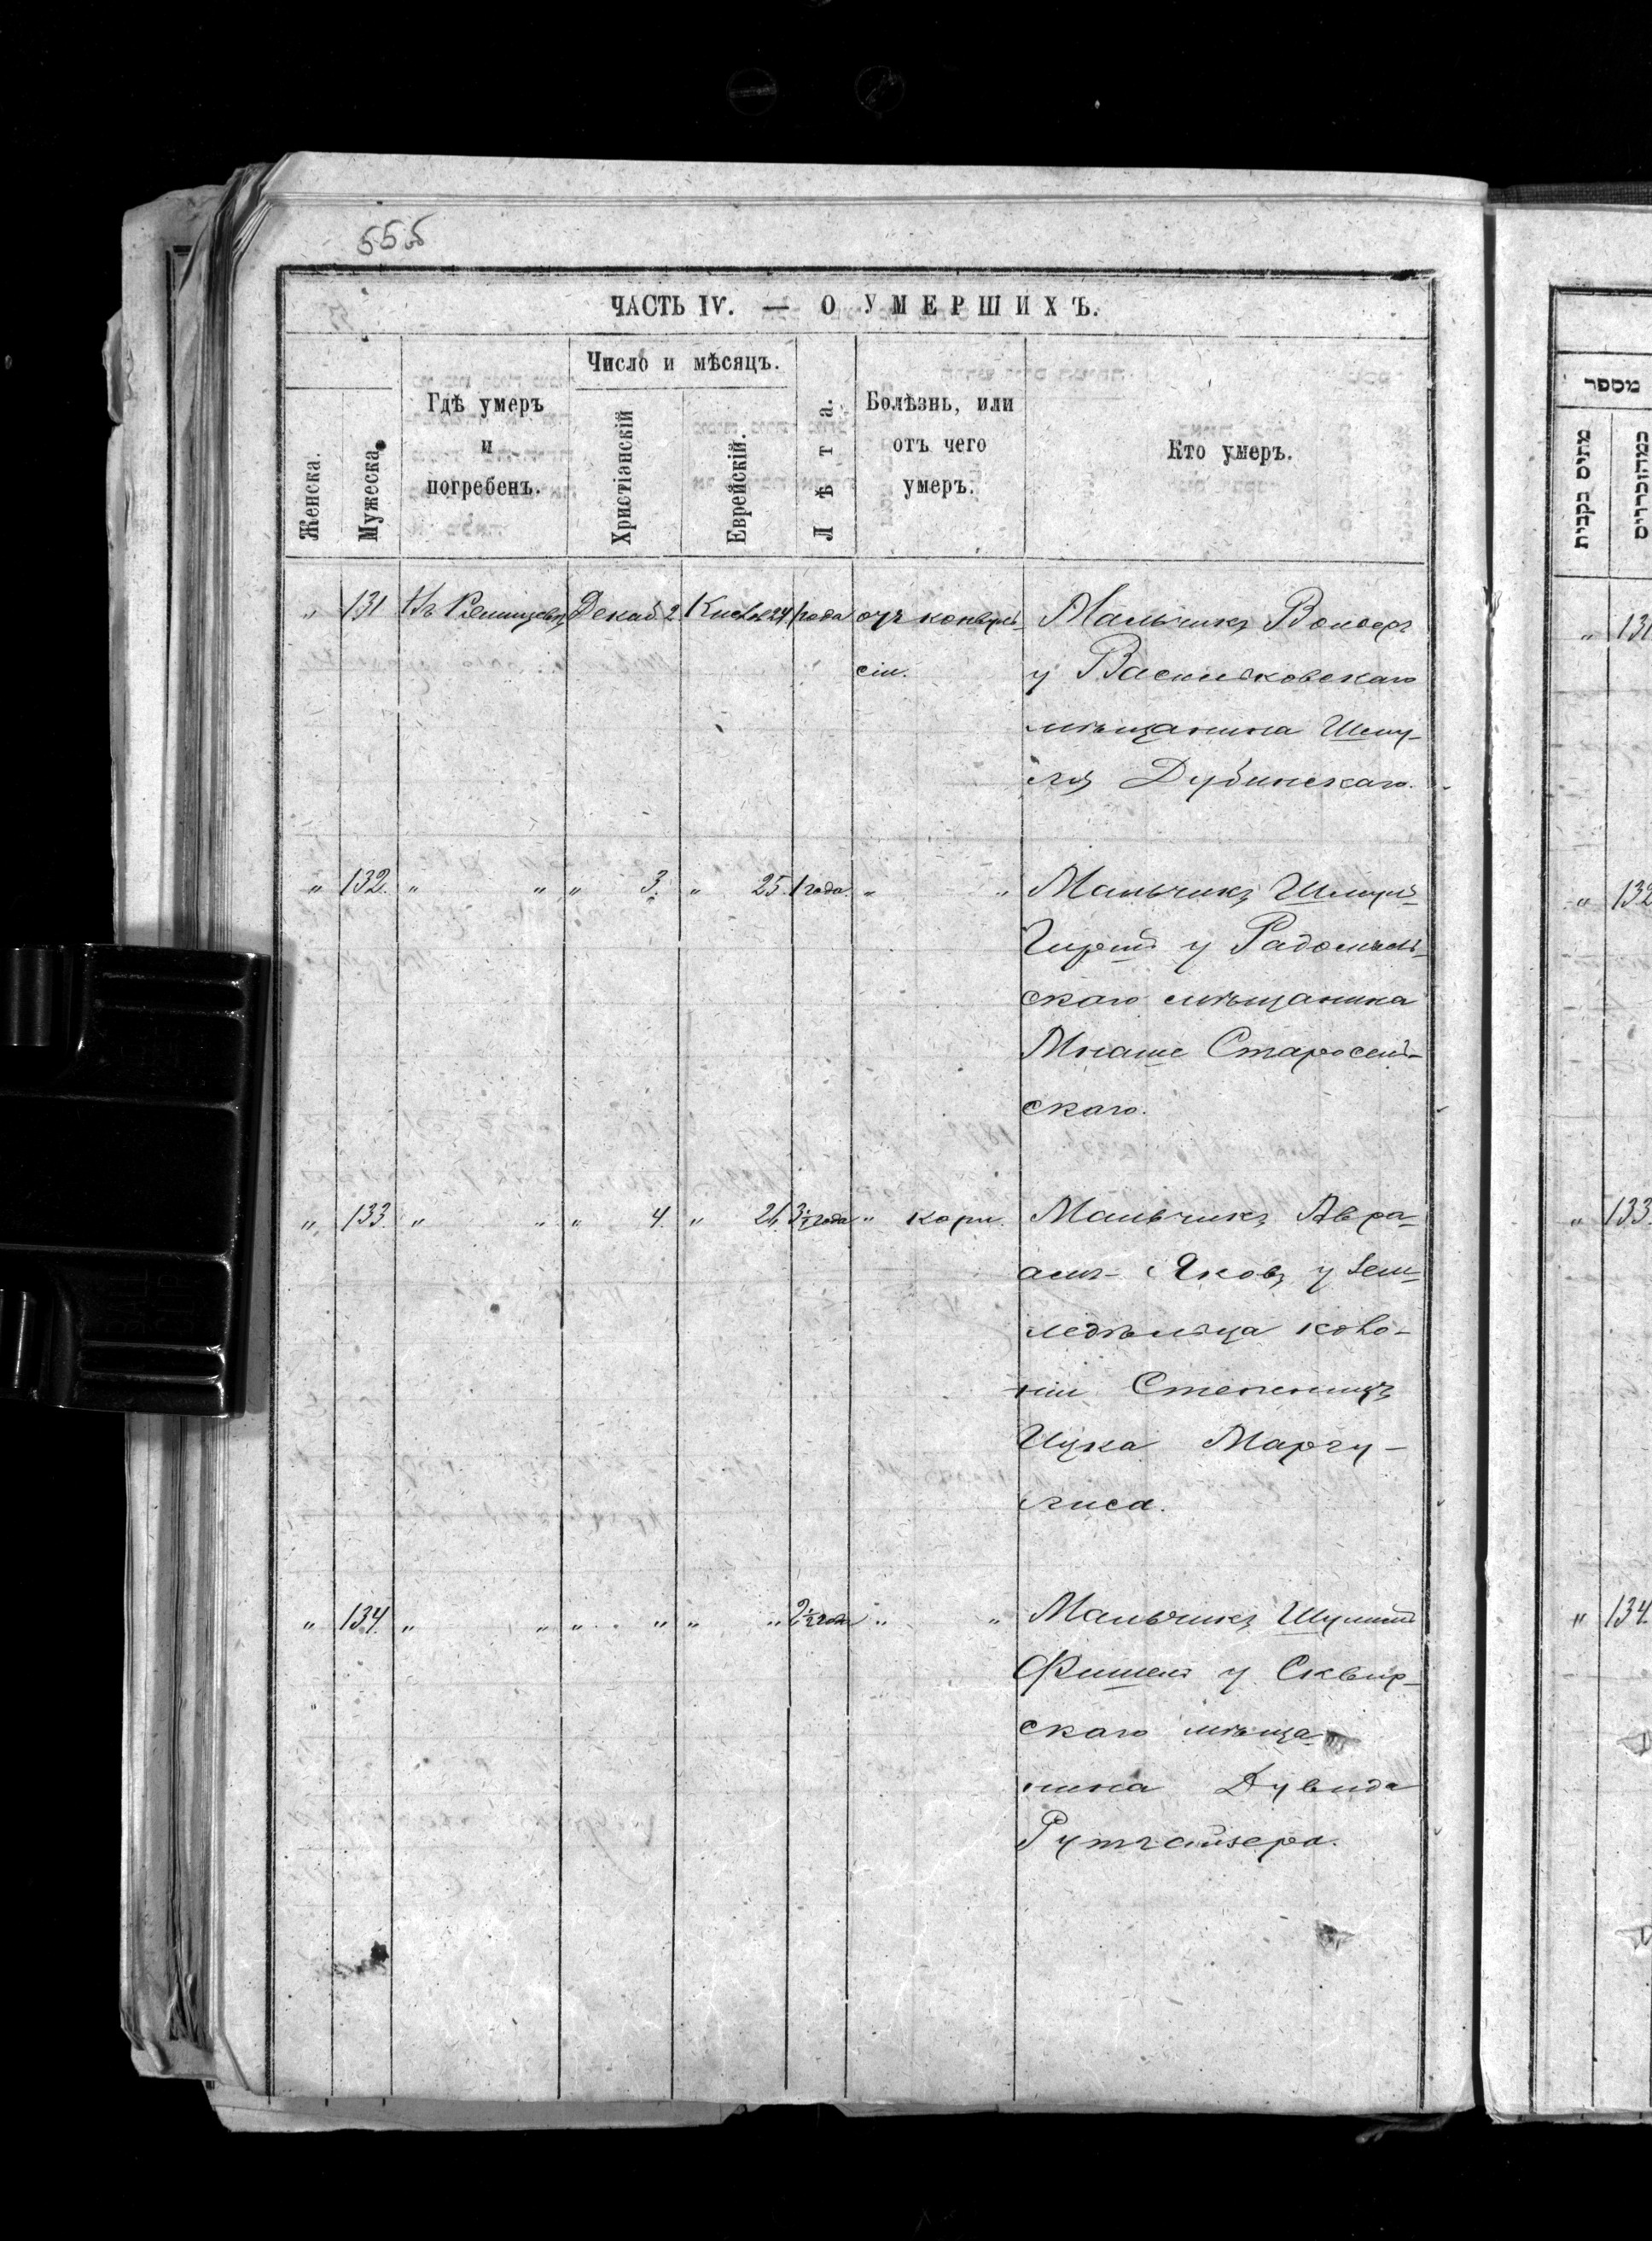 555
ЧАСТЬ IV. — О УМЕРШИХЪ.
Женска.
Мужеска.
Гдѣ умеръ
и
погребенъ.
Число и мѣсяцъ.
Христіанскій
Еврейскій.
Лѣта.
Болѣзнь, или
отъ чего
умеръ.
Кто умеръ.
" 131 Въ Декаб. 2 Кислев 24 1 года отъ конвуль-
сіи.
Мальчикъ
у Васильковскаго
мѣщанина Шму-
ля Дубинскаго.
" 132. " " " 3. " 25. 1 года. " "
Мальчикъ Шмуль
Гирш у Радомысль-
скаго мѣщанина
Мнаше Старосель-
скаго.
" 133. " " " 4. " 26 года " кори.
Мальчикъ Авра-
амъ-Яковъ у Зем-
ледѣльца коло-
ніи
Ицка Маргу-
лиса.
" 134. " " " " " " 2½ года " "
Мальчикъ
Фишель у Сквир-
скаго мѣща-
нина Дувида
Рутгайзера.
מספר
" 131
" 132
" 133.
" 134